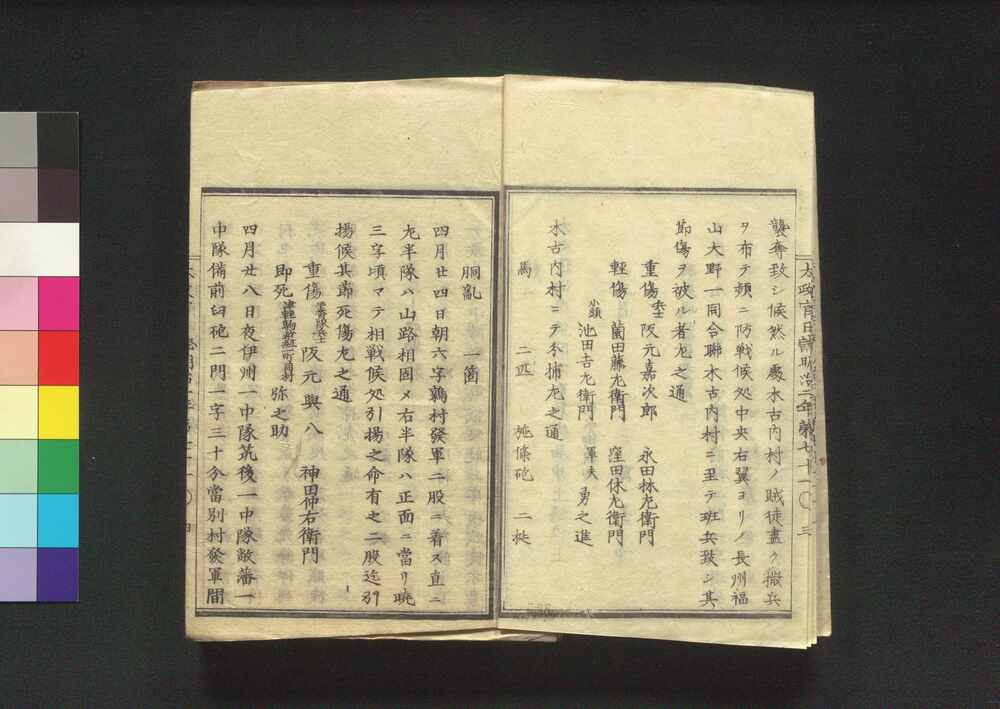 太政官日誌明治二年第七十一〇三
襲奔致シ候然ル處木古内村ノ賊徒盡ク撒兵
ヲ布テ頻ニ防戦候処中央右翼ヨリノ長州福
山大野一同合聯木古内村ニ至テ班兵致シ其
節傷ヲ被ル者左之通
重傷 兵士 阪元嘉次郎 永田林左衛門
輕傷 薗田藤左衛門 窪田休左衛門
小頭 池田吉左衛門 軍夫 勇之進
木古内村ニテ分捕左之通
馬 二匹 施條砲 二挺
胴亂 一箇
四月廿四日朝六字鶉村發軍二股ニ着ス直ニ
左半隊ハ山路相固メ右半隊ハ正面ニ當リ曉
三字頃マテ相戦候処引揚之命有之二股迄引
揚候其節死傷左之通
重傷 兵士 阪元與八 神田仲右衛門
即死 弥之助
四月廿八日夜伊州一中隊筑後一中隊敝藩一
中隊備前臼砲二門一字三十分當別村發軍間